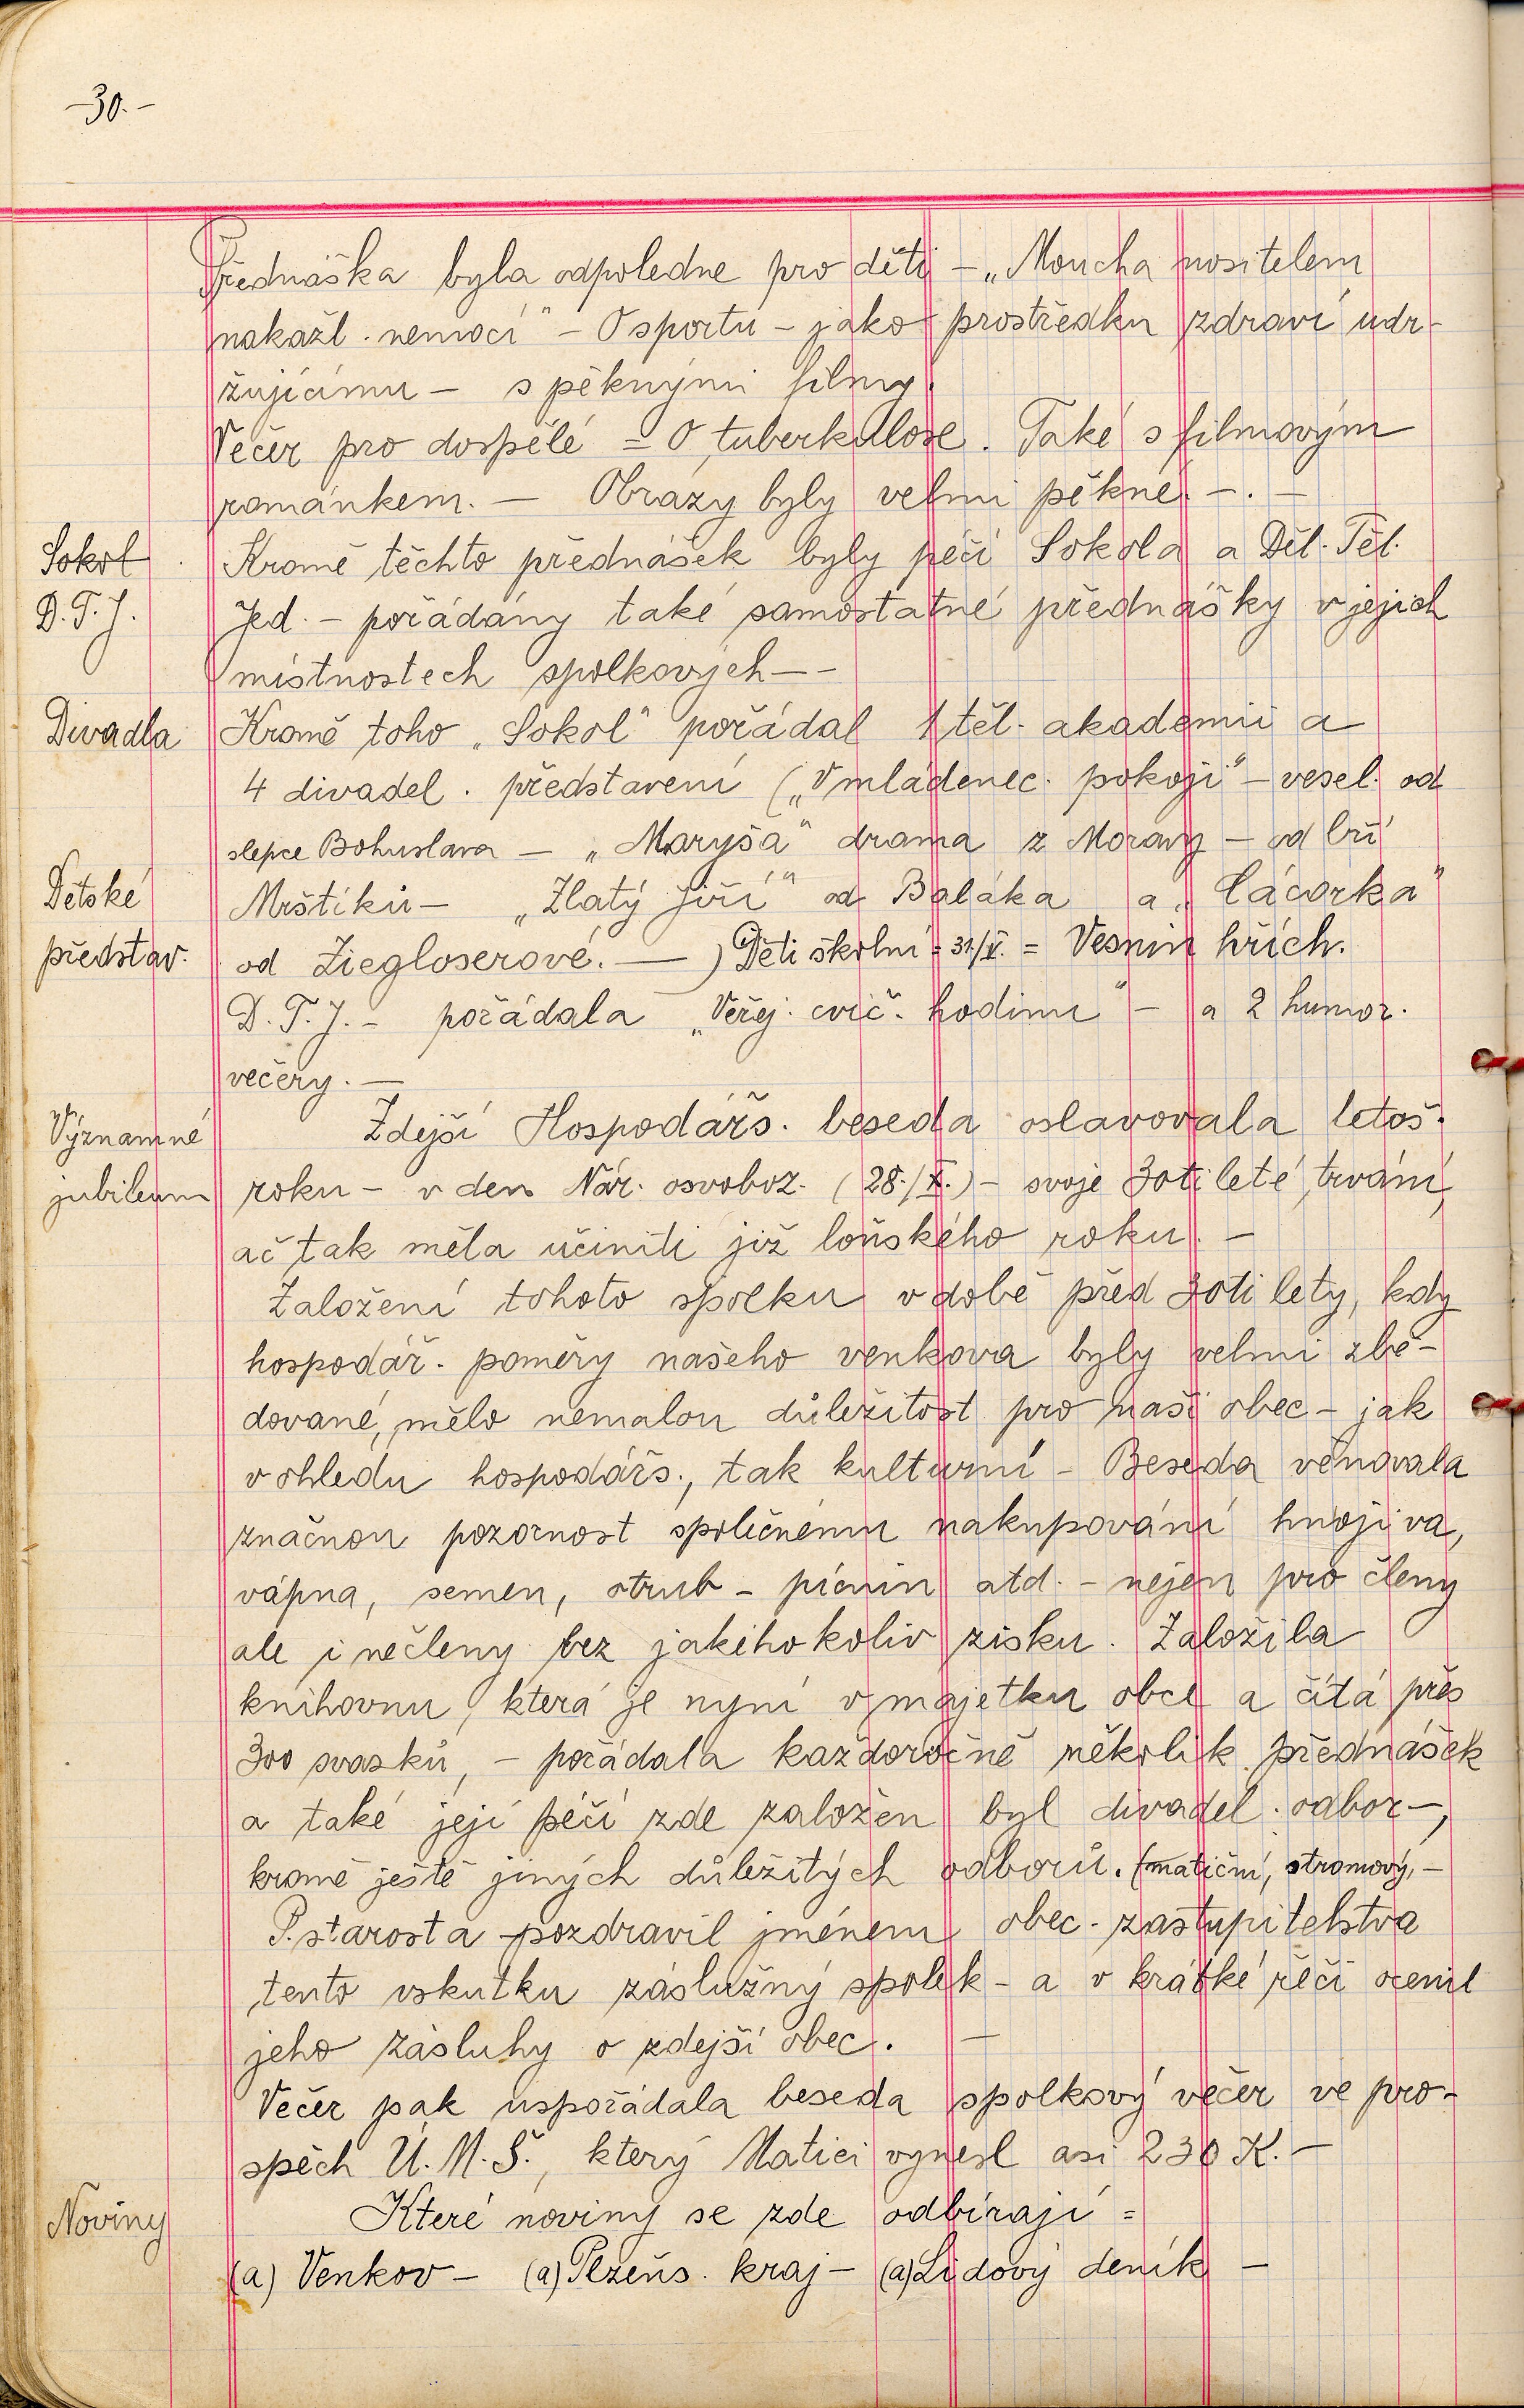 -30.-
Přednáška byla odpoledne pro děti - „Moucha nositelem
nakažl. nemocí" - O sportu - jako prostředku zdraví udr-
žujícímu - s pěknými filmy.
Večer pro dospělé = O tuberkulose. Také s filmovým
románkem. - Obrazy byly velmi pěkné. -. -
Sokol Kromě těchto přednášek byly péčí Sokola a Děl. Těl.
D. T. J. Jed. - pořádány také samostatné přednášky v jejich
místnostech spolkových - -
Divadla Kromě toho „Sokol" pořádal 1 těl. akademii a
4 divadel. představení („V mládenec. pokoji" - vesel. od
slepce Bohuslava - „Maryša" drama z Moravy - od bří
Dětské Mrštíků - „Zlatý Jiří" od Baláka a „Cácorka"
představ. od Ziegloserové. - ) Děti školní = 31/V. = Vesnin hřích.
D. T. J. - pořádala „Veřej. cvič. hodinu" - a 2 humor.
večery. -
Významné Zdejší Hospodářs. beseda oslavovala letoš.
jubileum roku - v den Nár. osvoboz. (28./X.) - svoje 30ti leté trvání,
ač tak měla učiniti již loňského roku. -
Založení tohoto spolku v době před 30ti lety, kdy
hospodář. poměry našeho venkova byly velmi zbě-
dované, mělo nemalou důležitost pro naši obec - jak
v ohledu hospodářs., tak kulturní - Beseda věnovala
značnou pozornost společnému nakupování hnojiva,
vápna, semen, otrub - pícnin atd. - nejen pro členy
ale i nečleny bez jakéhokoliv zisku. Založila
knihovnu, která je nyní v majetku obce a čítá přes
300 svasků, - pořádala každoročně několik přednášek
a také její péčí zde založen byl divadel. odbor -,
kromě ještě jiných důležitých odborů. (matiční, stromový, -
P. starosta pozdravil jménem obec. zastupitelstva
tento vskutku záslužný spolek - a v krátké řeči ocenil
jeho zásluhy o zdejší obec. -
Večer pak uspořádala beseda spolkový večer ve pro-
spěch Ú. M. Š., který Matici vynesl asi 230 K. -
Noviny Které noviny se zde odbírají =
(a) Venkov - (a) Plzeňs. kraj - (a) Lidový deník -